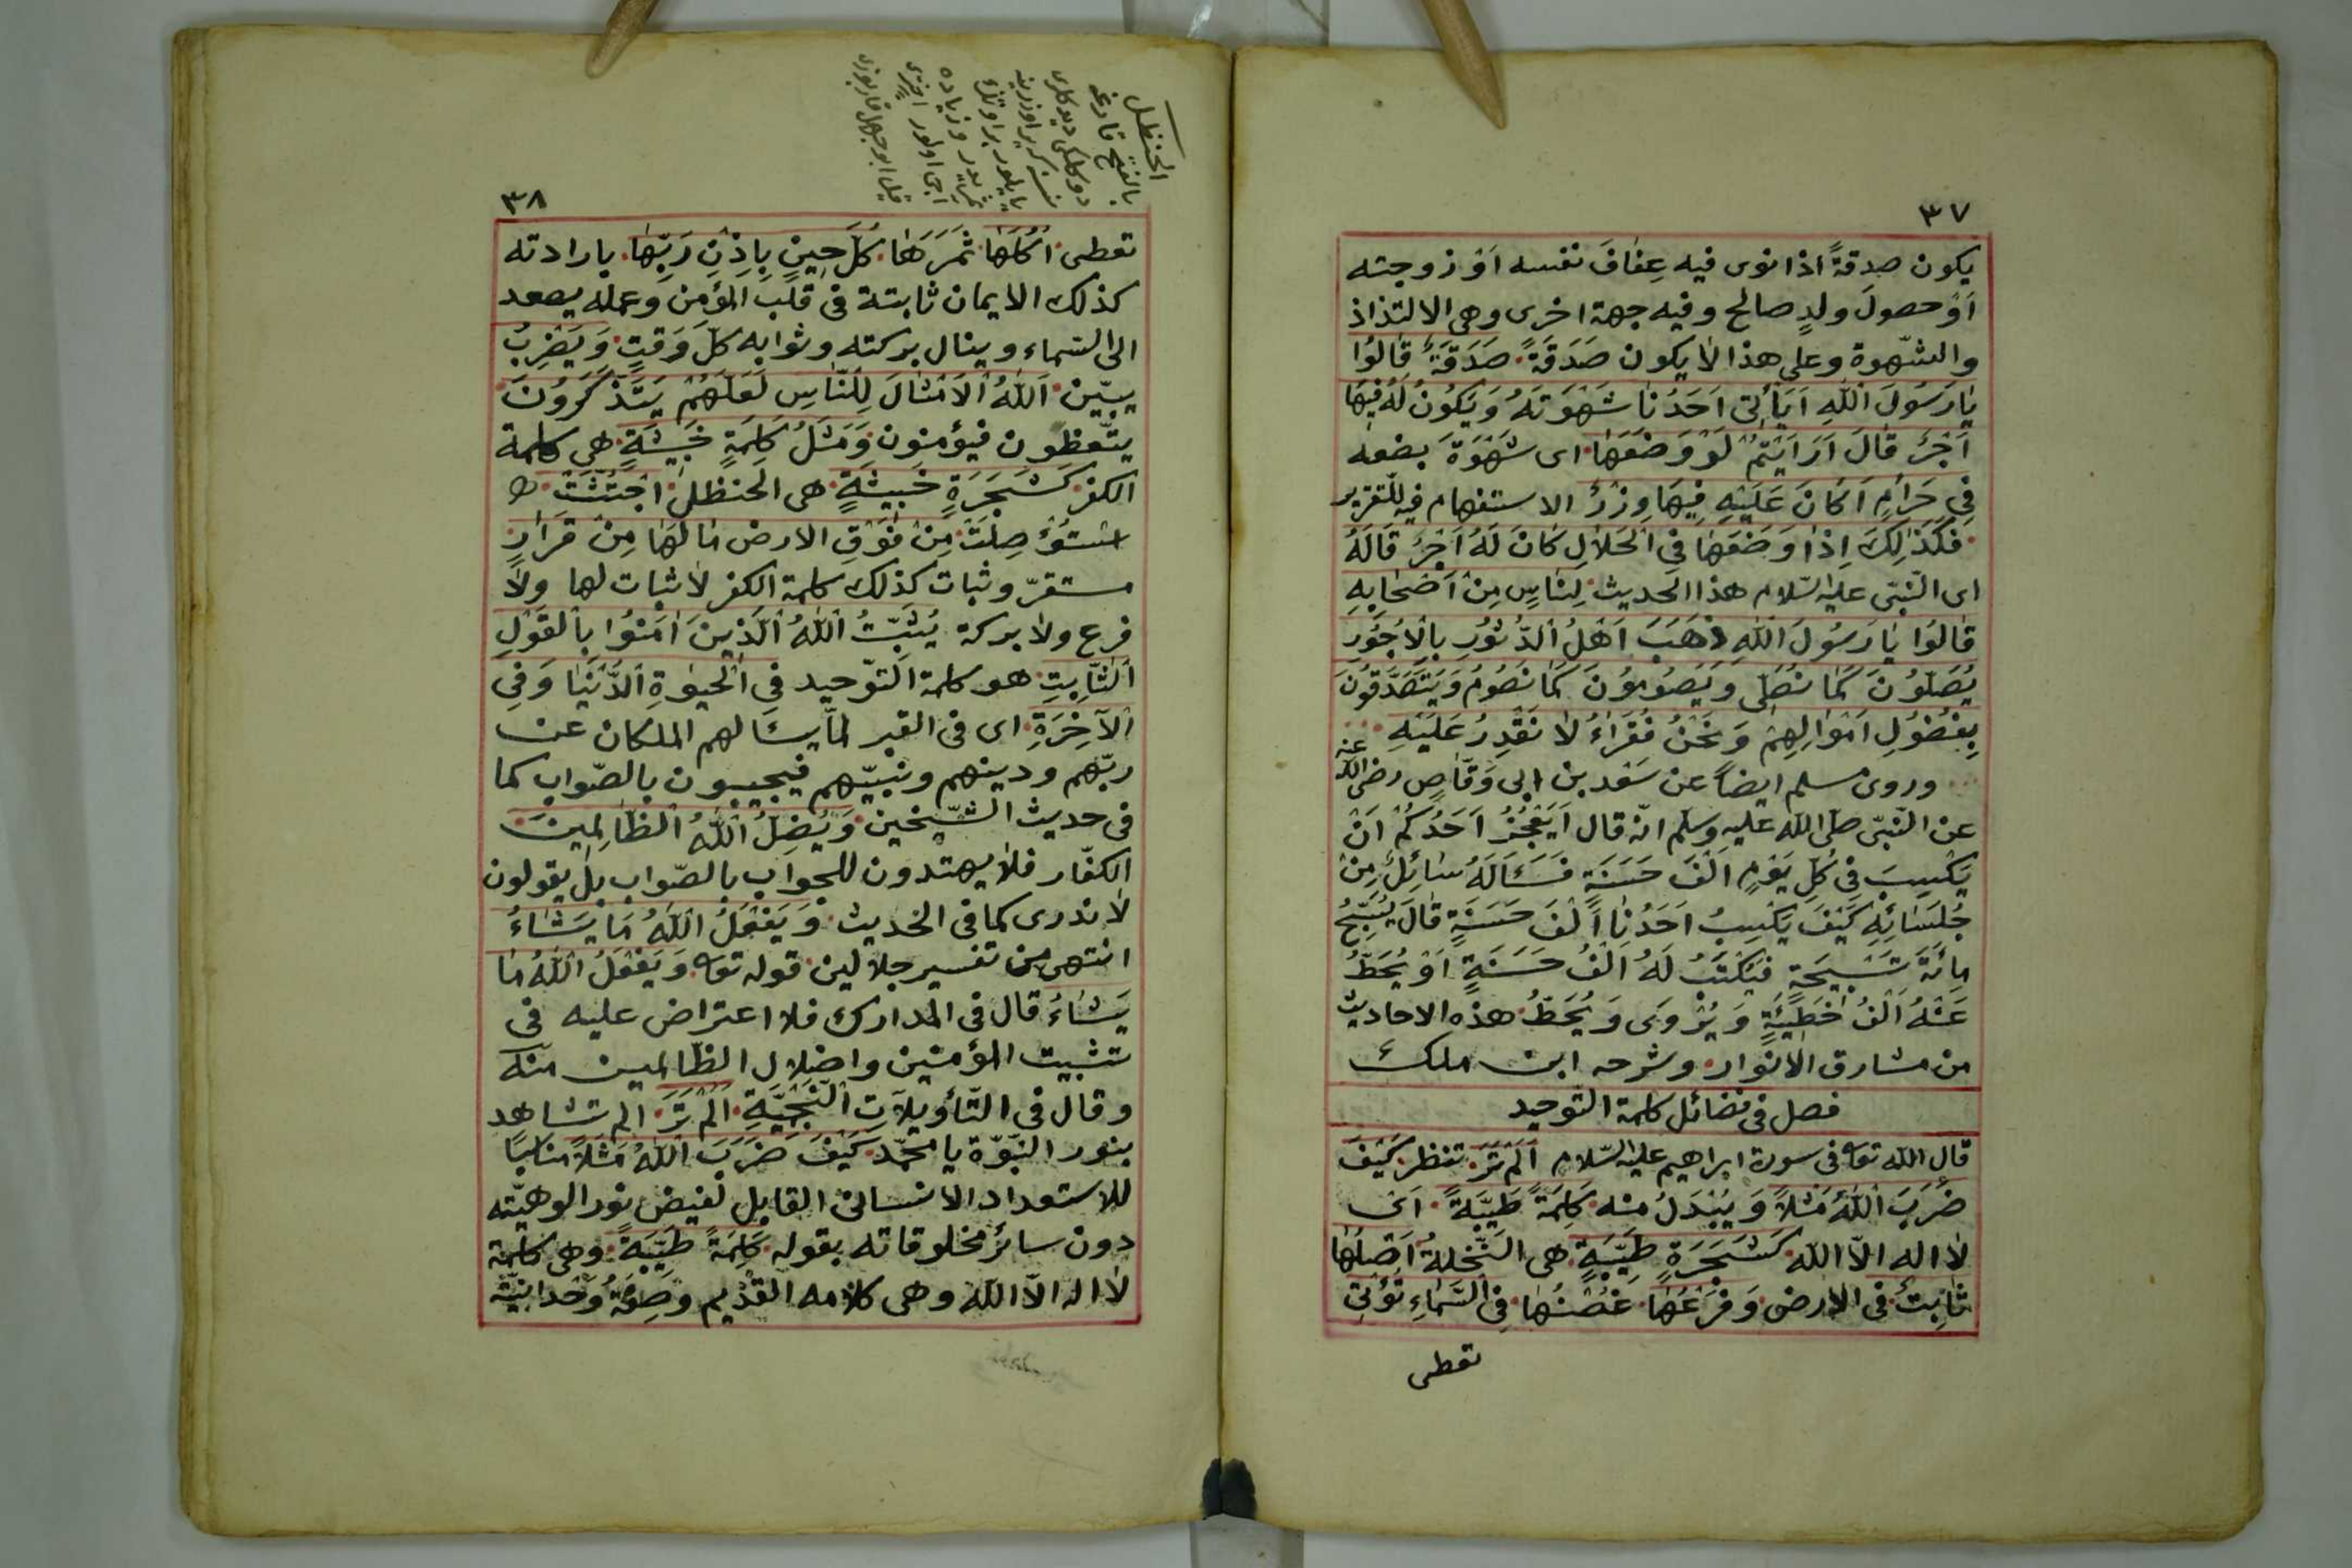 ٣٧
يكون صدقةً اذا نوى فيه عِفافَ نفسه اَوْ زوجته
اَوْ حصولَ ولدٍ صالح وفيه جهة اخرى وهى الالتذاذ
والشّهوة وعلى هذا لا يكون صَدَقَةً صَدَقَةً قالوُا
يٰا رَسوُلَ اللّٰهِ اَيَأْتى اَحَدُنٰا شَهْوَتَهُ وَيَكوُنُ لَهُ فيِهٰا
اَجْرٌ قٰالَ اَرَاَيْتُمْ لَوْ وَضَعَهٰا اى شَهْوَةَ بضعه
فِى حَرٰامٍ اَكٰانَ عَلَيْهِ فيِهٰا وِزْرٌ الاستفهام فيه للتقرير
فَكَذٰلِكَ اِذٰا وَضَعَهٰا فِى الْحَلاٰلِ كٰانَ لَهُ اَجْرٌ قٰالَهُ
اى النّبّى عليه السّلام هذا الحديث لِنٰاسٍ مِنْ اَصْحٰابِهِ
قٰالوُا يٰا رَسوُلَ اللّٰهِ ذَهَبَ اَهْلُ الدُّثوُرِ بِالْاُجوُرِ
يُصَلّوُنَ كَمٰا نُصَلّى وَيَصوُموُنَ كَمٰا نَصوُمُ وَيَتَصَدَّقوُنَ
بِفُضوُلِ اَمْوٰالِهِمْ وَنَحْنُ فُقَرٰاءُ لاٰ نَقْدِرُ عَلَيْهِ
وروى مسلم ايضاً عن سَعْد بن ابى وَقّاصٍ رضى اللّه عنه
عن النّبّى صلّى اللّه عليه وسلّم انّه قال اَيَعْجُزُ اَحَدُكُمْ اَنْ
يَكْسِبَ فِى كُلِّ يَوْمٍ اَلْفَ حَسَنَةٍ فَسَئَالَهُ سٰائِلٌ مِنْ
جُلَسٰائِهِ كَيْفَ يَكْسِبُ اَحَدُنٰا اَلْفَ حَسَنَةٍ قٰالَ يُسَبِّحُ
مِائَةَ تَسْبيِحَةٍ فَيُكْتَبُ لَهُ اَلْفُ حَسَنَةٍ اَوْ يُحَطُّ
عَنْهُ اَلْفُ خَطيِئَةٍ وَيُرْوَى وَيُحَطُّ هذه الاحاديث
من مشارق الانوار وشرحه ابن ملك
فصل فى فضائل كلمة التّوحيد
قال اللّه تعا فى سورة ابراهيم عليه السّلام اَلَمْ تَرَ تنظر كَيْفَ
ضَرَبَ اللّٰهُ مَثَلاً وَيُبْدَلُ منه كَلِمَةً طَيِّبَةً اَىْ
لا اله الاّ اللّه كَشَجَرَةٍ طَيِّبَةٍ هى النّخلة اَصْلُهٰا
ثٰابِتٌ فى الارض وَفَرْعُهٰا غُصْنُهٰا فِى السَّمٰاءِ تُؤْتِى
تعطى
٣٨
الحنظل
بالفتح
تعطى اُكُلَهٰا ثَمَرَهَا كُلَّ حيِنٍ بِاِذْنِ رَبِّهٰا بارادته
كذلك الايمان ثابتة فى قلب المؤمن وعمله يصعد
الى السّماء وينال بركته وثوابه كلّ وَقتٍ وَيَضْرِبُ
يبيّن اللّٰهُ الْاَمْثٰالَ لِلنّٰاسِ لَعَلَّهُمْ يَتَذَكَّرُونَ
يتّعظون فيؤمنون وَمَثَلُ كَلِمَةٍ خَبيثَةٍ هى كلمة
الكفر كَشَجَرَةٍ خَبيثَةٍ هى الحنظل اجْتُثَّتْ
استؤْصِلَتْ مِنْ فَوْقِ الارض مٰا لَهٰا مِنْ قَرٰارٍ
مستقرّ وثبات كذلك كلمة الكفر لا ثبات لها ولا
فرع ولا بركة يُثَبِّتُ اللّٰهُ الَّذينَ اٰمَنوُا بِالْقَوْلِ
الثّٰابِتِ هو كلمة التّوحيد فِى الْحَيٰوةِ الدُّنْيٰا وَفِى
الْاٰخِرَةِ اى فى القبر لمّا يسئالهم الملكان عن
ربّهم ودينهم ونبيّهم فيجيبون بالصّواب كما
فى حديث الشّيخين وَيُضِلُّ اللّٰهُ الظّٰالِميِنَ
الكفّار فلا يهتدون للجواب بالصّواب بل يقولون
لا ندرى كما فى الحديث وَيَفْعَلُ اللّٰهُ مَا يَشٰاءُ
انتهى من تفسير جلالين قوله تعا وَيَفْعَلُ اللّٰهُ مٰا
يَشٰاءُ قال فى المدارك فلا اعتراض عليه فى
تثبيت المؤمنين واضلال الظّالمين منّه
وقال فى التّأويلاٰتِ النَّجْمِيَّةِ اَلَمْ تَرَ الم تشاهد
بنور النّبوّة يا محمّد كَيْفَ ضَرَبَ اللّٰهُ مَثَلاً مناسبًا
للاستعداد الانسانى القابل لفيض نور الوهيّته
دون سائر مخلوقاته بقوله كَلِمَةً طَيِّبَةً وهى كلمة
لا اله الاّ اللّه وهى كلامه القديم وصِفَةُ وَحْدانيّته